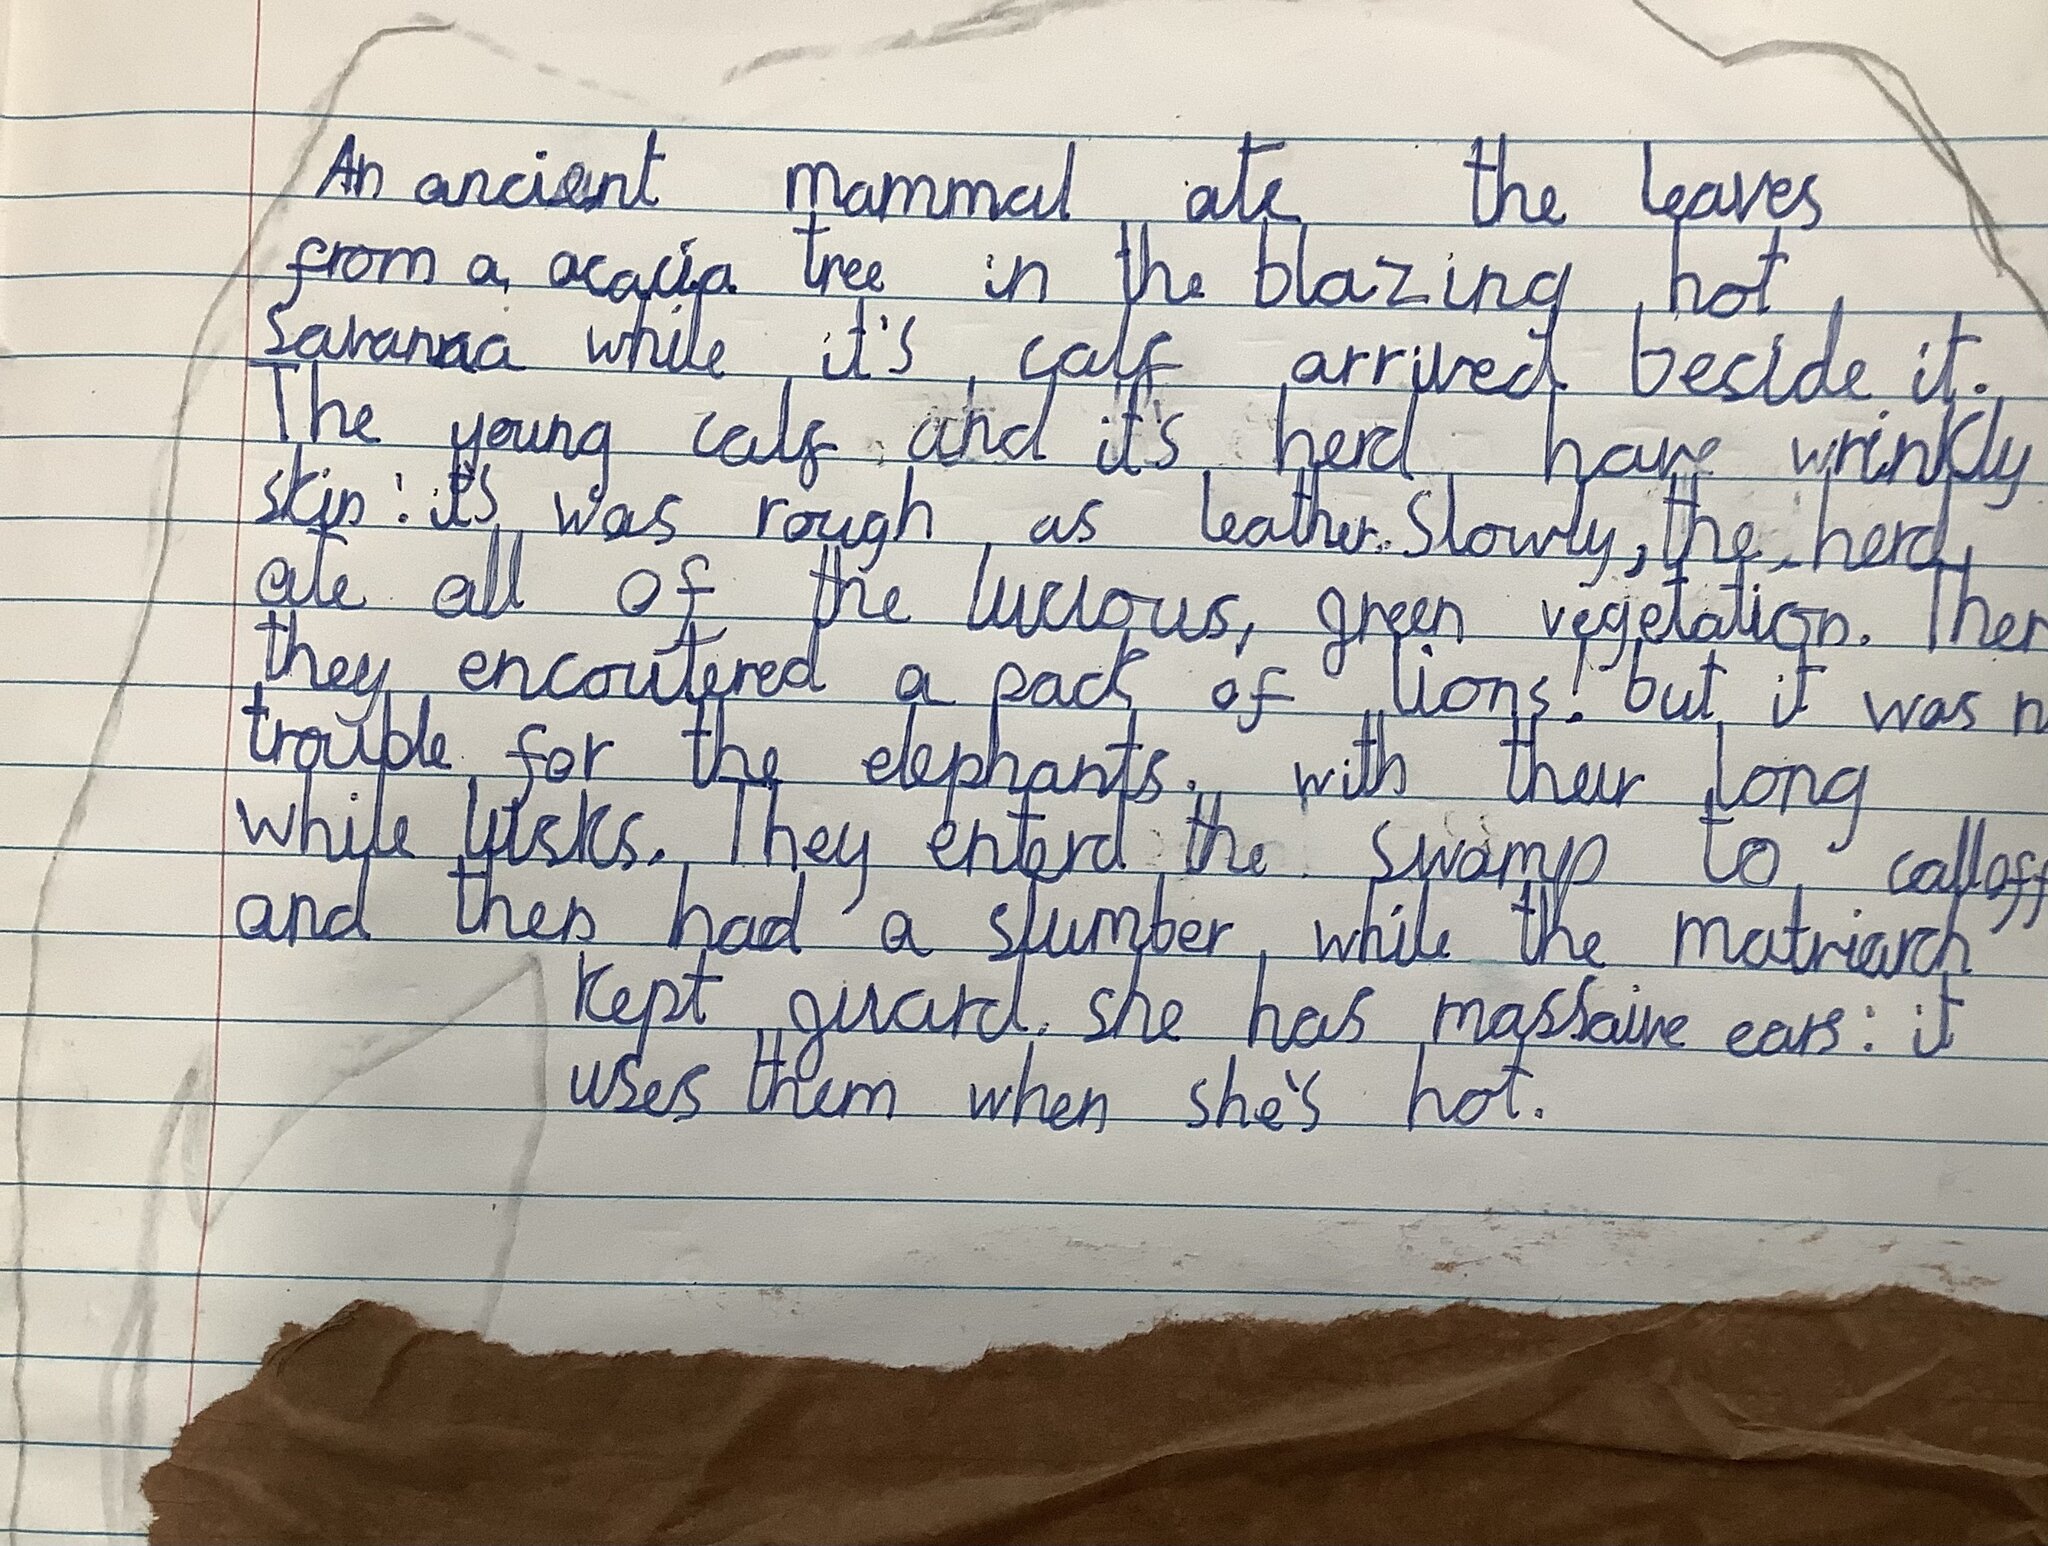 An ancient mammal ate the leaves
from a acacia tree in the blazing hot
Savanna while it's calf arrived beside it.
The young calf and it's herd have wrinkly
skin: it's was rough as leather. Slowly, the herd
ate all of the lucious, green vegetation. Then
they encoutered a pack of lions! but it was
trouble for the elephants. with their long
white tusks. They enterd the swamp to calloff
and then had a slumber while the matriarch
kept guard. she has massaive ears: it
uses them when she's hot.